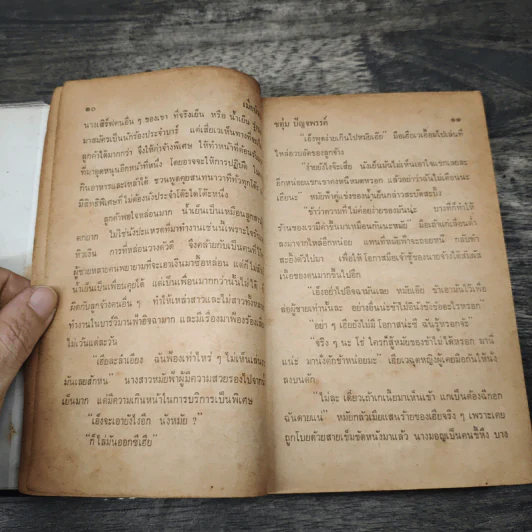 ๑๐
นางเสิร์ฟคนอื่น ๆ ของเขา ที่จริงเย็น หรือ น้ำเย็น
มาสมัครเป็นนักร้องประจำบาร์ แต่เสี่ย
ลูกค้าได้มากกว่า จึงให้ค่าจ้างพิเศษ ให้ทำหน้าที่ต้อนรับ
ที่มาอุดหนุนอีกหน้าที่หนึ่ง โดยอาจจะให้การปฏิบัติ
กินอาหารและเหล้าได้ ชวนพูดคุยสนทนาวาทีทั่วทุกโต๊ะ
มีสิทธิพิเศษที่ไม่ต้องนั่งประจำโต๊ะใดโต๊ะหนึ่ง
ลูกค้าพอใจหล่อนมาก น้ำเย็นเป็นเหมือน
ตกยาก ไม่ใช่นั่งประแหรดที่มาทำงานเช่นนี้เพราะใจรัก
ทั่วเงิน การที่หล่อนวางตัวดี จึงคล้ายกับเป็นคนที่
ผู้ชายหลายคนพยายามที่จะเอาเงินมาซื้อหล่อน แต่ก็ไม่
น้ำเย็นเป็นเพื่อนคุยได้ แต่เป็นเพื่อนมากกว่านั้นไม่ได้
ผิดกับลูกจ้างคนอื่น ๆ ทำให้เหล่าสาวและไม่สาวทั้งหลาย
ทำงานในบาร์วิมานฟ้าอิจฉามาก และมีเรื่องมาฟ้องร้อง
ไม่เว้นแต่ละวัน
"เฮียละลำเอียง ฉันฟ้องเท่าไหร่ ๆ ไม่เห็น
มันเลยสักหน" นางสาวหมัยฟ้าผู้มีความสวยรองไปจาก
เย็นมาก แต่มีความเกินหน้าในการบริการเป็นพิเศษ
"เอ็งจะเอายังไงอีก นังหมัย ?"
"ก็ไล่มันออกซิเฮีย"
๑๑
ชอุ่ม ปัญจพรรค์
"เอ็งพูดง่ายเกินไปหมัยเอ๊ย" มือเสี่ยเวกเอื้อมไปเล่นที่
ไหล่อวบอัดของลูกจ้าง
"ร้ายยังไงจ๊ะเสี่ย น้ำเย็นมันไม่เห็นเอาใจแขกเลยสะ
อีกหน่อยแขกเขาคงหนีหมดหรอก แล้วอย่าว่าฉันไม่เตือนนะ
เฮียนะ" หมัยฟ้าคู่แข่งของน้ำเย็นกล่าวสะบัดสะบิ้ง
"ข้าว่าความที่ไม่ค่อยง่ายของมันน่ะ บางทีก็ทำให้
ร้านของเรามีค่าขึ้นมาเหมือนกันนะหมัย" มือเสี่ยเก๋าเลื่อนต่ำ
ลงมาจากไหล่อีกหน่อย แทนที่หมัยฟ้าจะถอยหนี กลับทำ
สะอิ้งตัวไปมา เพื่อให้โอกาสมือเจ้าชู้ของนายจ้างได้สัมผัส
เนื้อของตนมากขึ้นไปอีก
"เอ็งอย่าไปอิจฉามันเลย หมัยเอ๊ย ข้าเอามันไว้เพื่อ
ล่อผู้ชายเท่านั้นละ อย่างอื่นน่ะข้าไม่ยินังขังขออะไรหรอก"
"อย่า ๆ เฮียยังไม่มี โอกาสน่ะซี ฉันรู้หรอกจ้ะ"
"จริง ๆ นะ โธ่ ใครก็สู้หมัยของข้าไม่ได้หรอก มานี่
แน่ะ มานั่งตักข้าหน่อยมะ" เสี่ยเวกฉุดหญิงผู้เคยมือกันให้นั่ง
ลงบนตัก
"ไม่ละ เดี๋ยวเถ้าเกเนี้ยมาเห็นเข้า แกเป็นต้องฉีกอก
ฉันตายแน่" หมัยกลัวเมียแสนร้ายของเฮียจริง ๆ เพราะเคย
ถูกโบยด้วยสายเข็มขัดหนังมาแล้ว นางมอญเป็นคนขี้หึง บาง